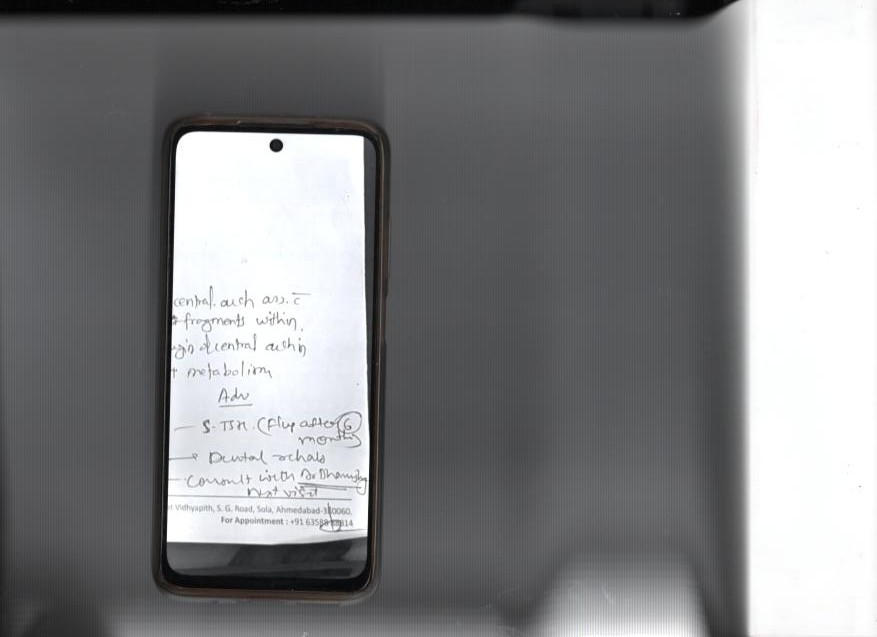 central. arch ass. c̄
fragments within
of central arch in
metabolism
Adv
- S. TSH. (F/up after 6
months)
→ Dental rehab
- Consult with Dr
next visit
Vidhyapith, S. G. Road, Sola, Ahmedabad-380060.
For Appointment : +91